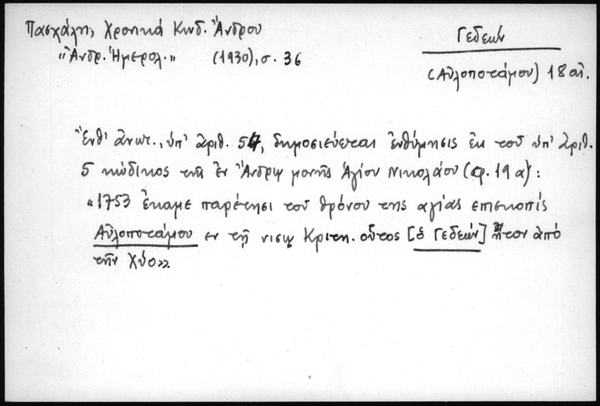 Πασχάλη, Χρονικά Κωδ. Ἄνδρου
"Ἀνδρ. Ἡμερολ." (1930), σ. 36
Γεδεών
(Αὐλοποτάμου) 18 αἰ.
Ἔνθ' ἄνωτ., ὑπ' ἀριθ. 57, δημοσιεύεται ἐνθύμησις ἐκ τοῦ ὑπ' ἀριθ.
5 κώδικος τῆς ἐν Ἄνδρῳ μονῆς Ἁγίου Νικολάου (φ. 19 α) :
«1753 ἔκαμε παρέτησι τοῦ θρόνου της αγίας επισκοπίς
Αὐλοποτάμου εν τῇ νισῳ Κριτη. οὗτος [ὁ Γεδεών] ἦτον ἀπό
τὴν Χύο»